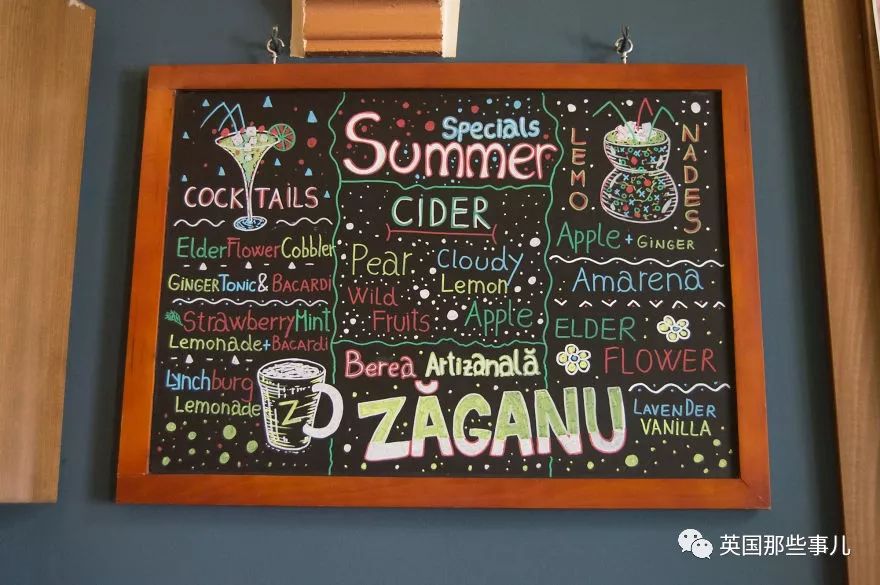 COCKTAILS
ElderFlowerCobbler
GINGERTONIC& BACARDI
StrawberryMint
Lemonade+Bacardi
Lynchburg
Lemonade
Z
Specials
SUMMER
CIDER
Pear
Wild
Fruits
Cloudy
Lemon
Apple
Berea Artizanală
ZĂGANU
LEMO
NADES
Apple+GINGER
Amarena
ELDER
FLOWER
LAVENDER
VANILLA
英国那些事儿